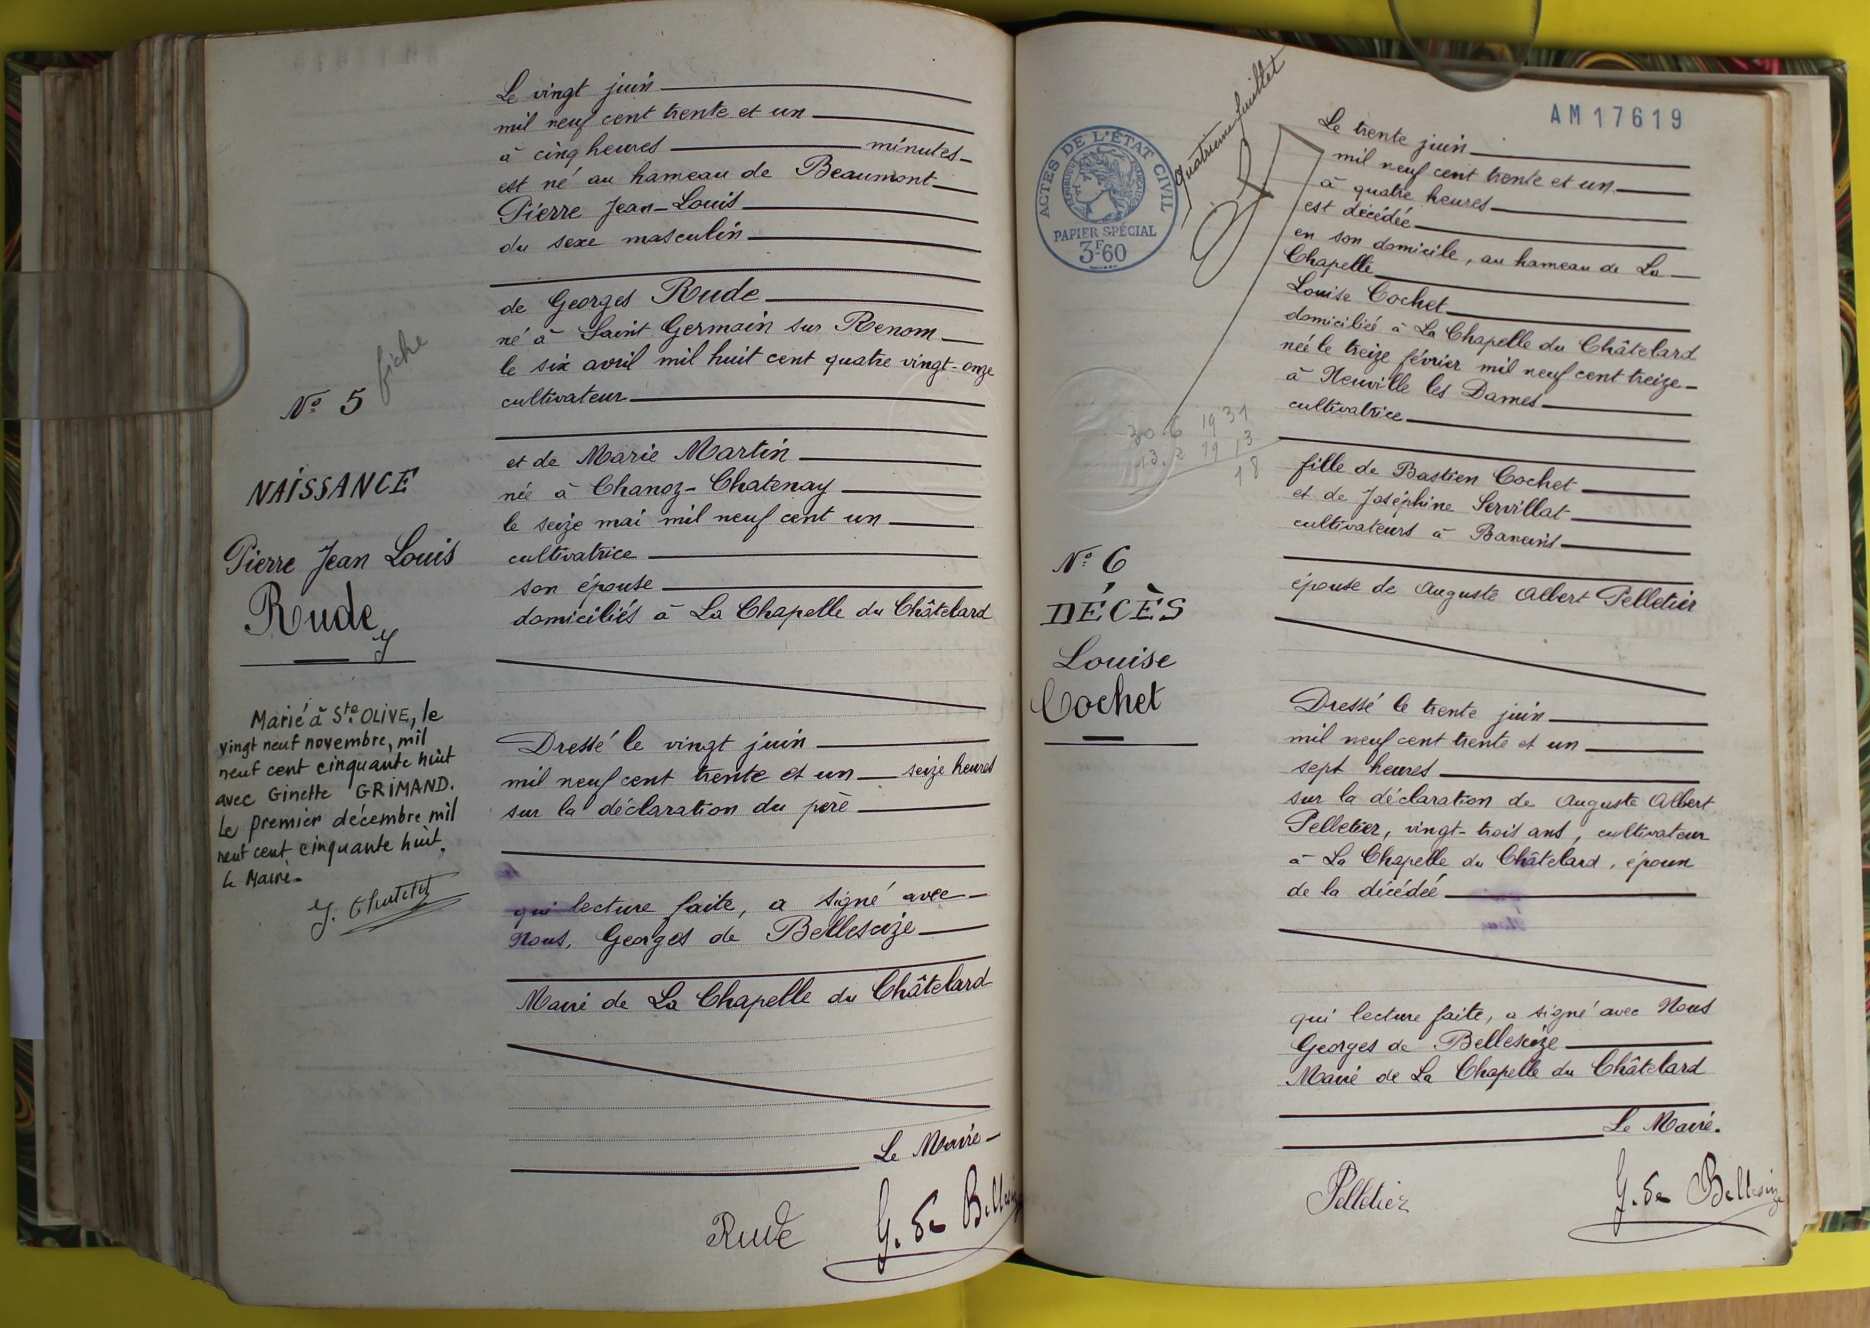 fiche
Nº 5
NAISSANCE
Pierre Jean Louis
Rude
Marié à Ste OLIVE, le
vingt neuf novembre, mil
neuf cent cinquante huit
avec Ginette GRIMAND.
Le premier décembre mil
neuf cent cinquante huit.
Le Maire.
Le vingt juin
mil neuf cent trente et un
à cinq heures minutes
est né au hameau de Beaumont
Pierre Jean-Louis
du sexe masculin
de Georges Rude
né à Saint Germain sur Renom
le six avril mil huit cent quatre vingt-onze
cultivateur
et de Marie Martin
née à Chanoz-Chatenay
le seize mai mil neuf cent un
cultivatrice
son épouse
domiciliés à La Chapelle du Châtelard
Dressé le vingt juin
mil neuf cent trente et un seize heures
sur la déclaration du père
qui lecture faite, a signé avec
Nous, Georges de Bellescize
Maire de La Chapelle du Châtelard
Le Maire
Rude G. de Bellescize
AM 17619
ACTES DE L'ÉTAT CIVIL
PAPIER SPÉCIAL
3F60
Quatrième feuillet
30.6 1931
13.2 1913
18
Nº 6
DÉCÈS
Louise
Cochet
Le trente juin
mil neuf cent trente et un
à quatre heures
est décédée
en son domicile, au hameau de La
Chapelle
Louise Cochet
domiciliée à La Chapelle du Châtelard
née le treize février mil neuf cent treize
à Neuville les Dames
cultivatrice
fille de Bastien Cochet
et de Joséphine Servillat
cultivateurs à Baneins
épouse de Auguste Albert Pelletier
Dressé le trente juin
mil neuf cent trente et un
sept heures
sur la déclaration de Auguste Albert
Pelletier, vingt-trois ans, cultivateur
à La Chapelle du Châtelard, époux
de la décédée
qui lecture faite, a signé avec Nous
Georges de Bellescize
Maire de La Chapelle du Châtelard
Le Maire.
Pelletier G. de Bellescize